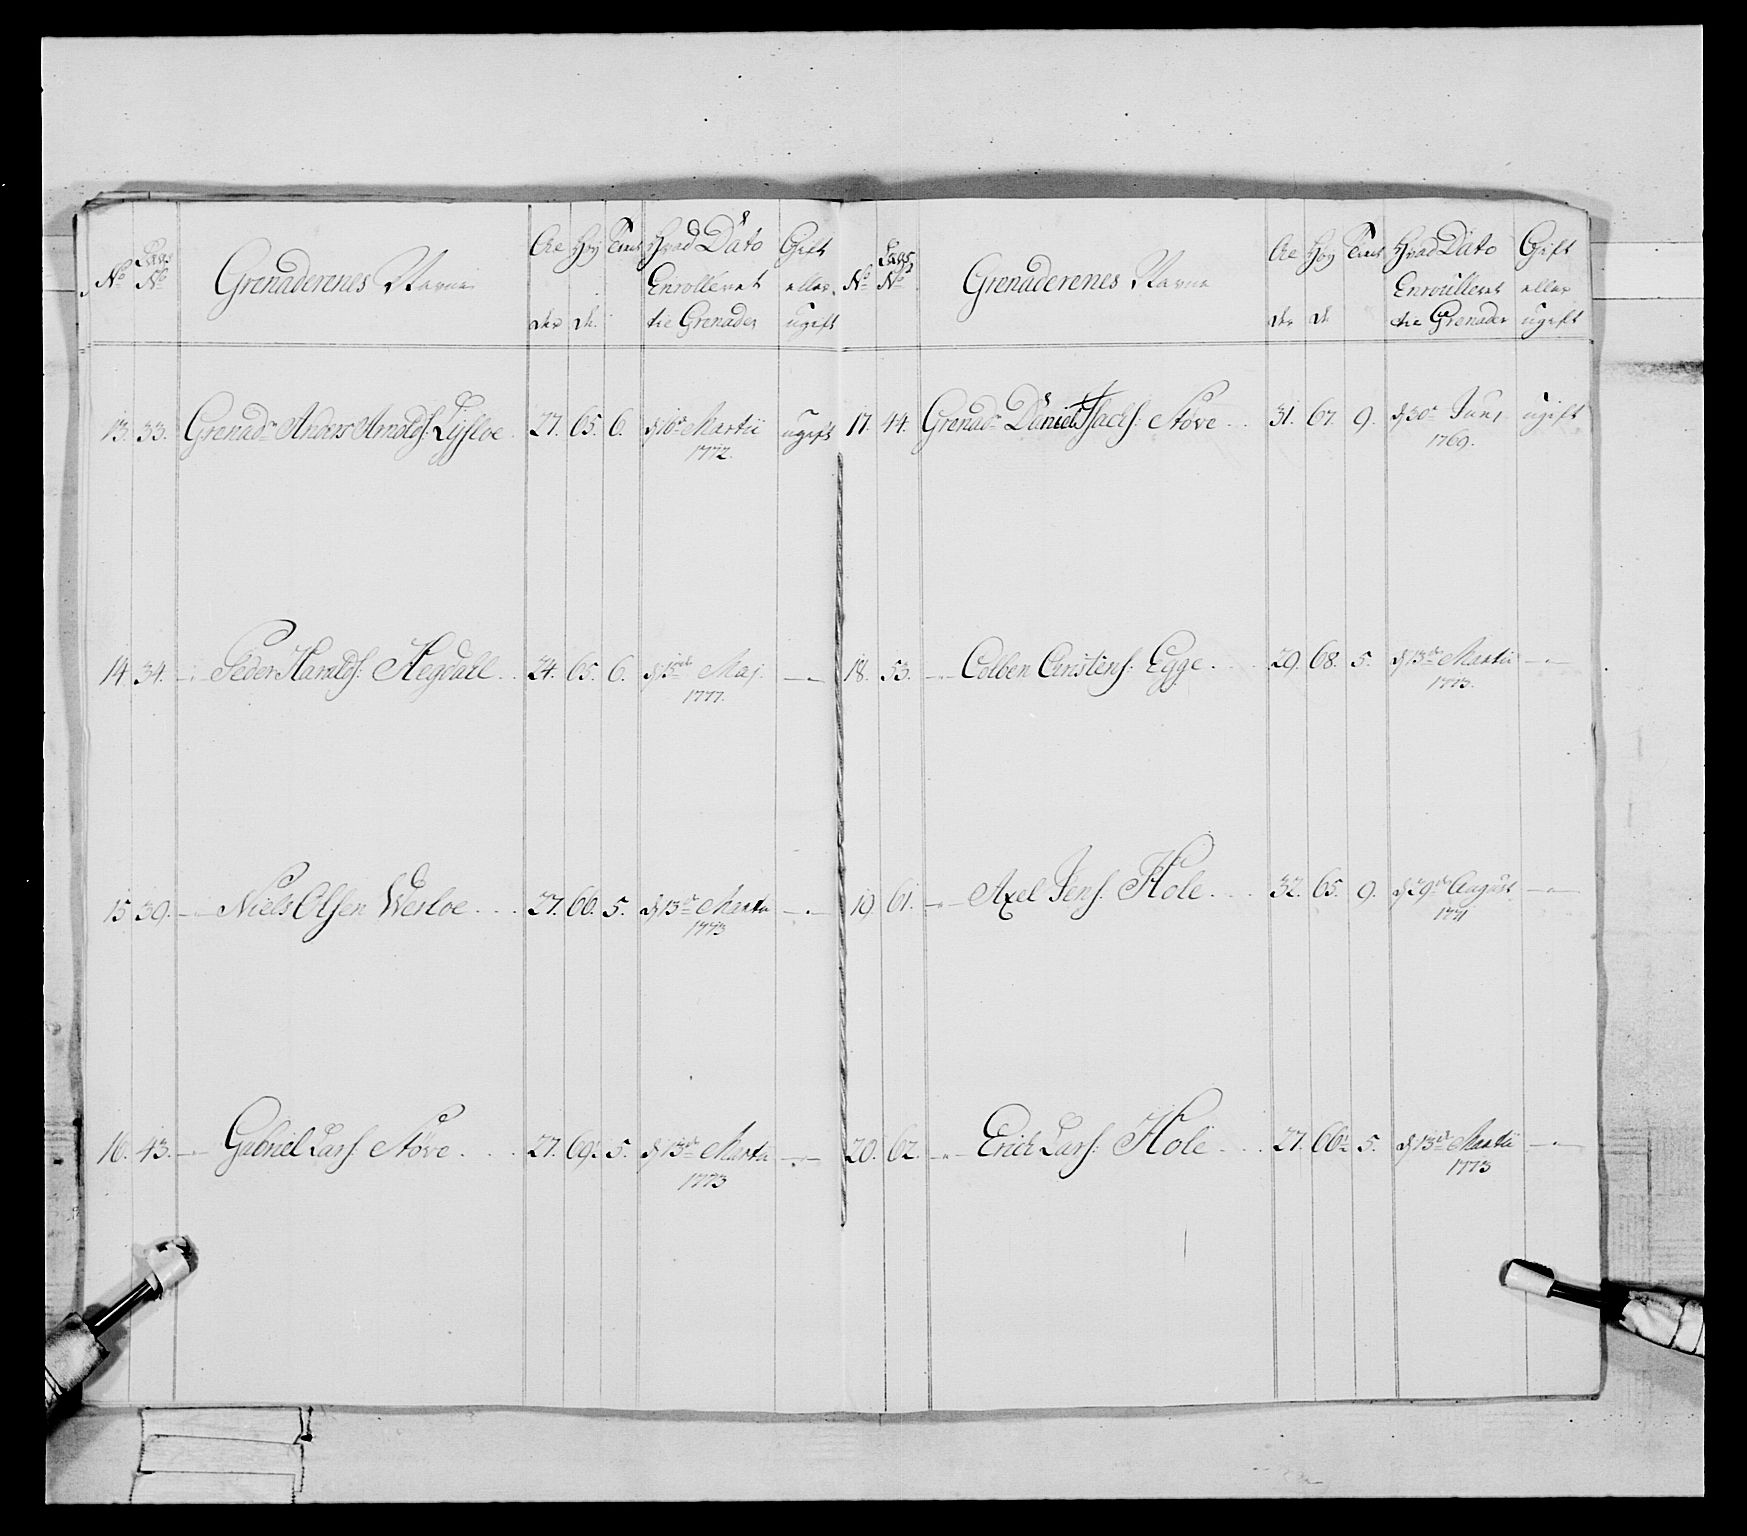 No Lægs No Grenaderenes Navne Al der Høy de Tient Hvad Dato Enrolleret til Grenader Gift eller ugift
13. 33. Grenadr Anders Arnolds: Lysloe. 27. 65. 6. d 10de Martii 1772. ugift
14. 34. — Peder Haralds: Hegdall.. 24. 65. 6. d 15de Maj. 1777. —
15. 39. — Niels Olsen Werloe... 27. 66. 5. d 13de Martii 1773 —
16. 43. — Gabriel Lars: Støve.... 27. 69½. 5. d 13de Martii 1773 —
No Lægs No Grenaderenes Navne Al der Høy de Tient Hvad Dato Enroulleret til Grenader Gift eller ugift
17. 44. Grenadr Daniel Isachs: Støve.. 31. 67. 9. d 30te 1769. ugift
18. 53. — Colben Christens: Egge... 29. 68. 5. d 13de Martii 1773. —
19. 61. — Axel Jens: Hole... 32. 65. 9. d 29de August 1771 —
20. 62. — Erich Lars: Hole... 27. 66½ 5. d 13de Martii 1773 —